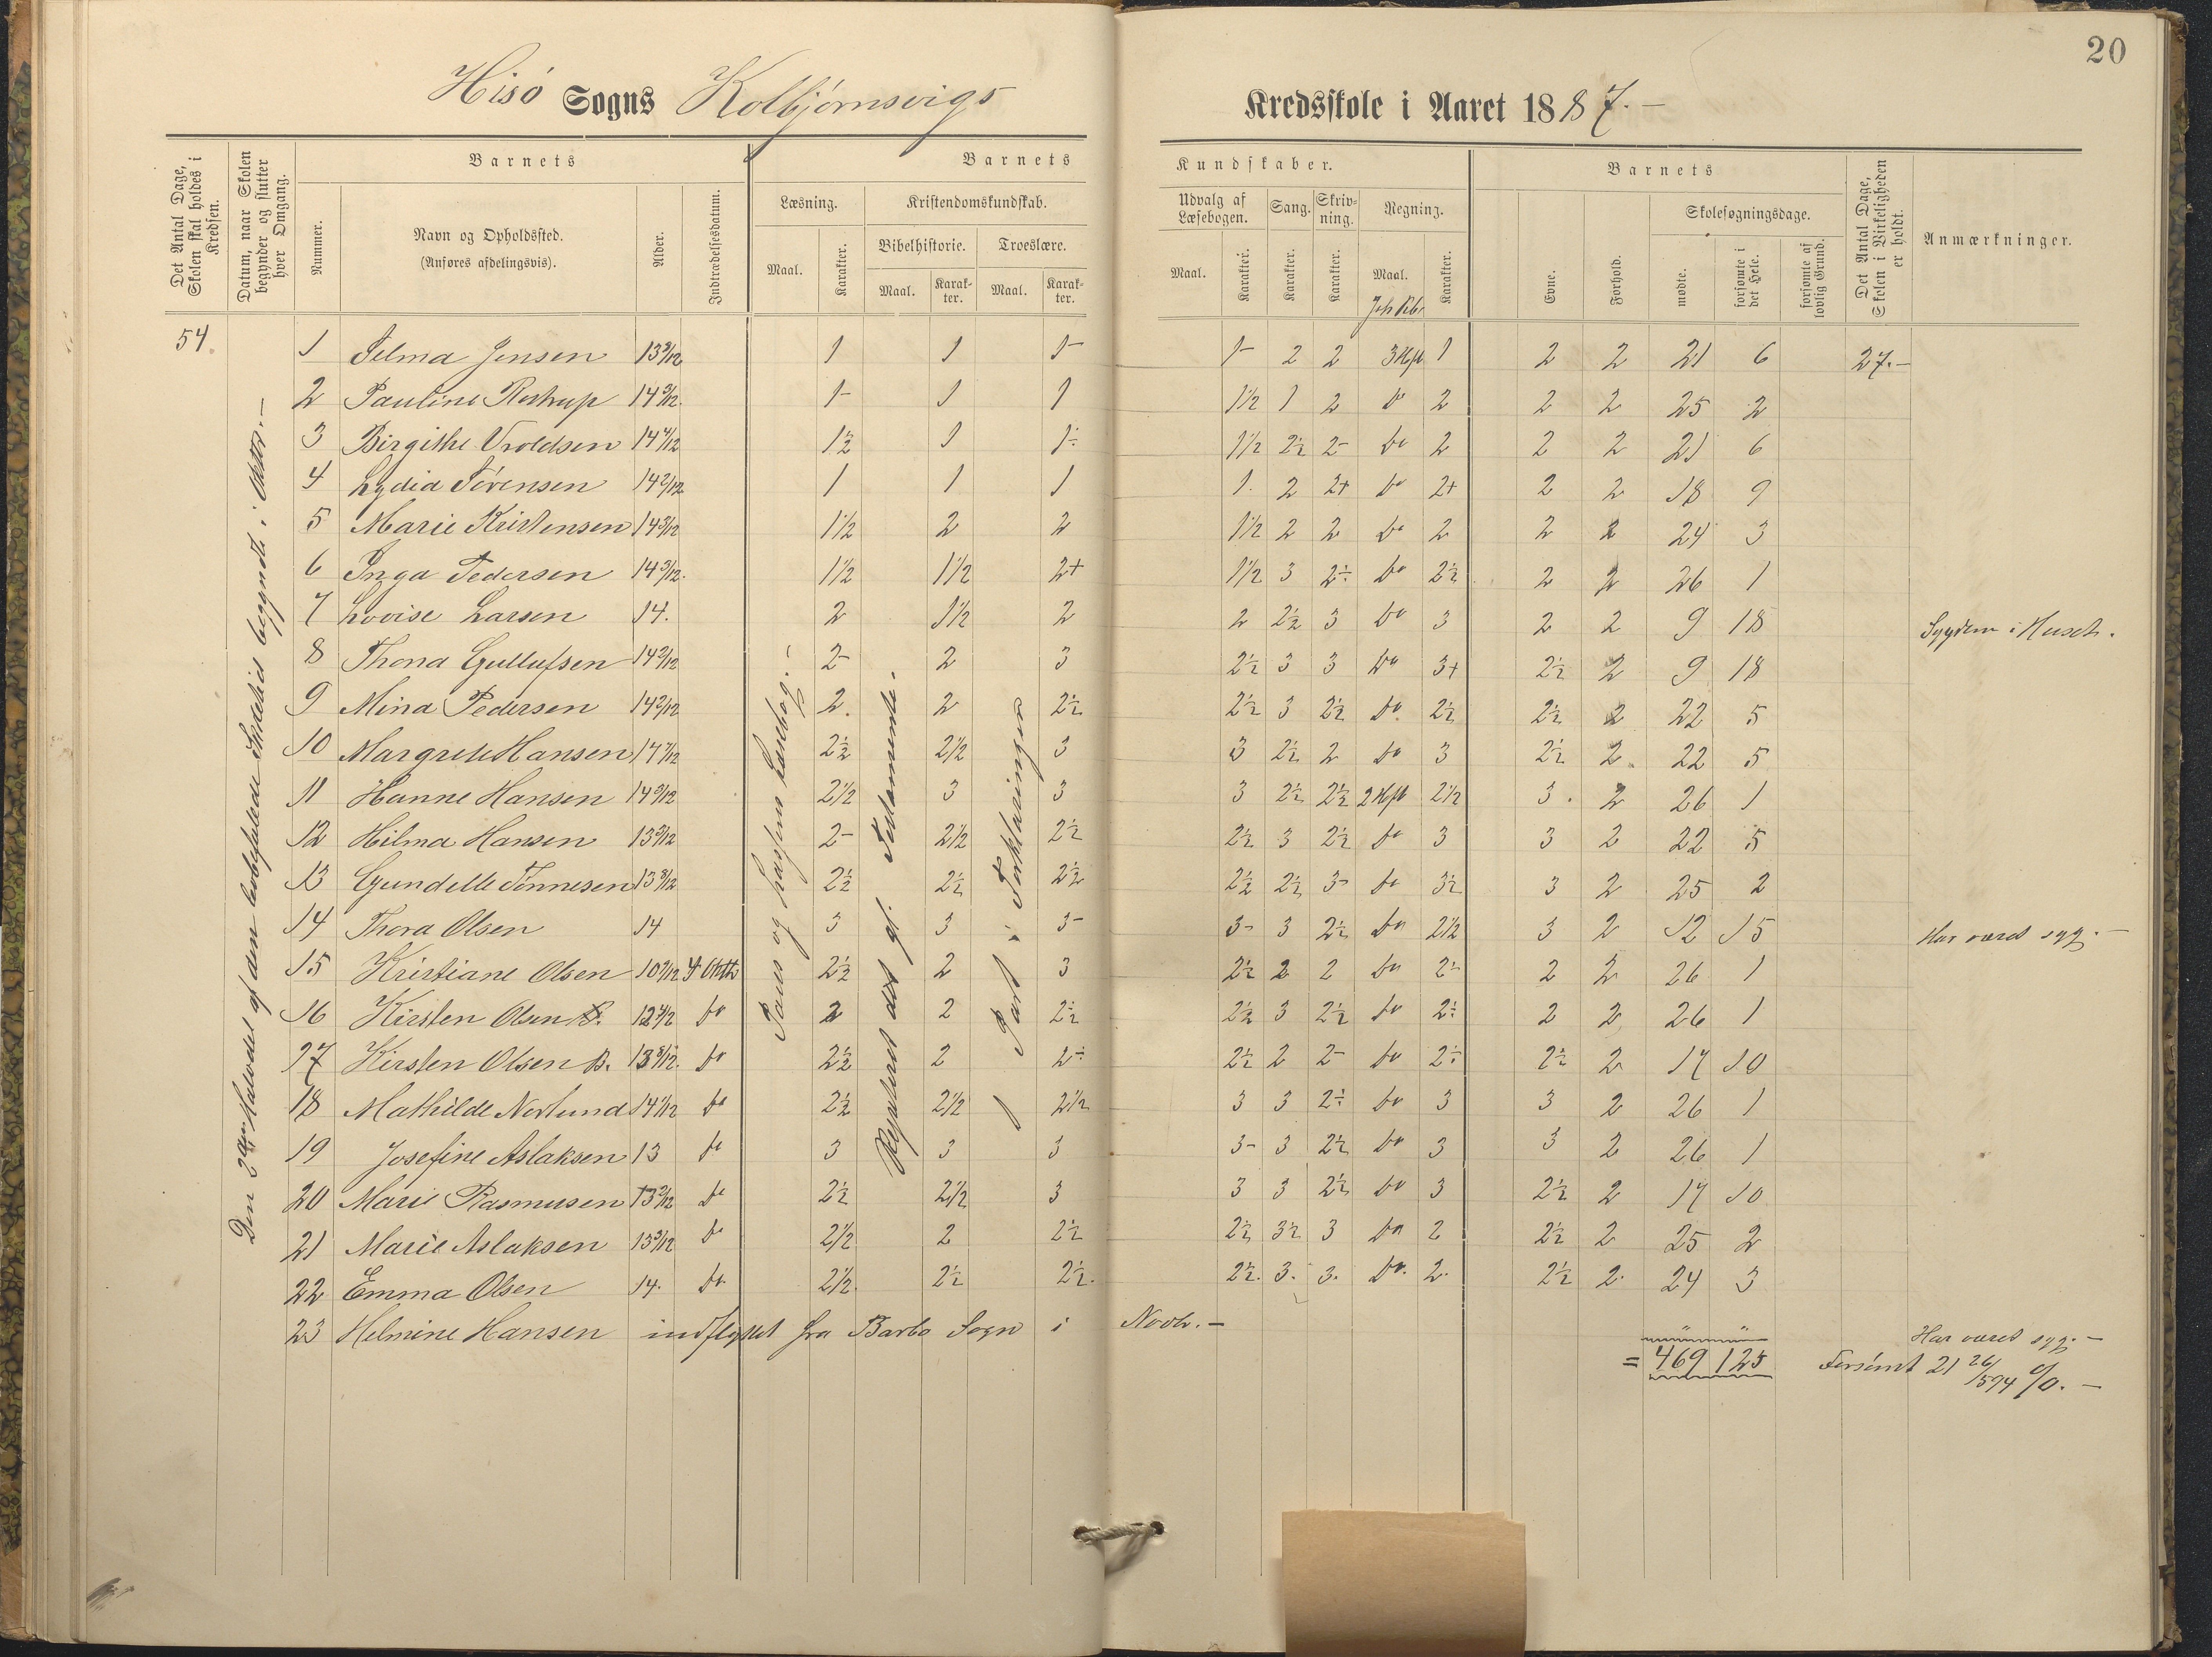 20
Hisö Sogns Kolbjörnsvigs Kredsskole i Aaret 1887.-
Det Antal Dage, Skolen skal holdes i Kredsen.
Datum, naar Skolen begynder og slutter hver Omgang.
Barnets
Nummer.
Navn og Opholdssted.
(Anføres afdelingsvis).
Alder.
Indtrædelsesdatum.
Barnets Kundskaber.
Læsning.
Maal.
Karakter.
Kristendomskundskab.
Bibelhistorie.
Maal.
Karakter.
Troeslære.
Maal.
Karakter.
Udvalg af Læsebogen.
Maal.
Karakter.
Sang.
Karakter.
Skrivning.
Karakter.
Regning.
Maal.
Karakter.
Barnets
Evne.
Forhold.
Skolesøgningsdage.
mødte.
forsømte i det Hele.
forsømte af lovlig Grund.
Det Antal Dage, Skolen i Virkeligheden er holdt.
Anmærkninger.
54 1 Selma Jensen 13 9/12 1 1 1- 1- 2 2 3 Hft 1 2 2 21 6 27.-
2 Pauline Rostrup 14 9/12. 1- 1 1 1 1/2 1 2 do 2 2 2 25 2
3 Birgithe Vroldsen 14 4/12 1 1/2 1 1÷ 1 1/2 2 1/2 2- do 2 2 2 21 6
4 Lydia Sörensen 14 2/12 1 1 1 1. 2 2+ do 2+ 2 2 18 9
5 Marie Kristensen 14 3/12 1 1/2 2 2 1 1/2 2 2 do 2 2 2 24 3
6 Inga Pedersen 14 3/12. 1 1/2 1 1/2 2+ 1 1/2 3 2÷ do 2 1/2 2 2 26 1
7 Lovise Larsen 14. 2 1 1/2 2 2 2 1/2 3 do 3 2 2 9 18 Sygdom i Huset.
8 Thona Gullufsen 14 2/12 2- 2 3 2 1/2 3 3 do 3+ 2 1/2 2 9 18
9 Mina Pedersen 14 2/12 2. 2 2 1/2 2 1/2 3 2 1/2 do. 2 1/2 2 1/2 2 22 5
10 Margrete Hansen 14 7/12 2 1/2 2 1/2 3 3 2 1/2 2 do 3 2 1/2 2 22 5
11 Hanne Hansen 14 9/12 2 1/2 3 3 3 2 1/2 2 1/2 2 Hft 2 1/2 3. 2 26 1
12 Hilma Hansen 13 9/12 2- 2 1/2 2 1/2 2 1/2 3 2 1/2 do 3 3 2 22 5
13 Gundelle Tönnesen 13 8/12 2 1/2 2 1/2 2 1/2 2 1/2 2 1/2 3- do 3 1/2 3 2 25 2
14 Thora Olsen 14 3 3 3- 3- 3 2 1/2 do 2 1/2 3 2 12 15 Har været syg.-
15 Kristiane Olsen 10 9/12 2 1/2 2 3 2 1/2 2 2 do 2÷ 2 2 26 1
16 Kirsten Olsen 12 4/12 do 2 2 2 1/2 2 1/2 3 2 1/2 do 2÷ 2 2 26 1
17 Kirsten Olsen B. 13 8/12. do 2 1/2 2 2÷ 2 1/2 2 2- do 2÷ 2 1/2 2 17 10
18 Mathilde Norlund 14 1/12 do 2 1/2 2 1/2 2 1/2 3 3 2÷ do 3 3 2 26 1
19 Josefine Aslaksen 13 do 3 3 3 3- 3 2 1/2 do 3 3 2 26 1
20 Marie Rasmusen 13 2/12 do 2 1/2 2 1/2 3 3 3 2 1/2 do 3 2 1/2 2 17 10
21 Marie Aslaksen 13 9/12 do 2 1/2 2 2 1/2 2 1/2 3 1/2 3 do 2 2 1/2 2 25 2
22 Emma Olsen 14. do. 2 1/2. 2 1/2 2 1/2. 2 1/2. 3. 3. do. 2. 2 1/2 2. 24 3
23 Helmine Hansen indflyttet fra Barbo Sogn i Novb.-
Har været syg.-
= 469 125 Forsömt 21 26/594 %.-
Den 2den Halvdel af den lovbefalede Skoletid begyndt i Oktbr.-
Pauss og Lassens Læsebog.-
Repeteret det gl. Testamente.-
1 Part i Forklaringen